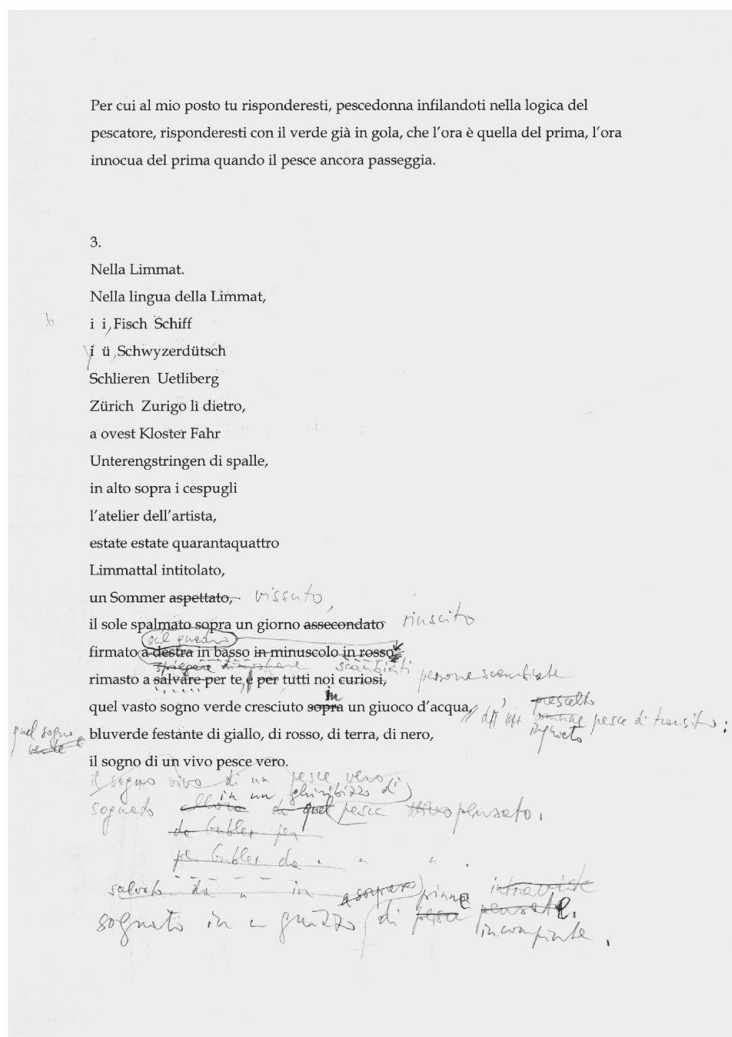 Per cui al mio posto tu risponderesti, pescedonna infilandoti nella logica del
pescatore, risponderesti con il verde già in gola, che l'ora è quella del prima, l'ora
innocua del prima quando il pesce ancora passeggia.
3.
Nella Limmat.
Nella lingua della Limmat,
b i i, Fisch Schiff
i ü, Schwyzerdütsch
Schlieren Uetliberg
Zürich Zurigo lì dietro,
a ovest Kloster Fahr
Unterengstringen di spalle,
in alto sopra i cespugli
l'atelier dell'artista,
estate estate quarantaquattro
Limmattal intitolato,
un Sommer aspettato, vissuto,
il sole spalmato sopra un giorno assecondato riuscito
sul quadro
firmato a destra in basso in minuscolo in rosso,
scambiati
rimasto a salvare per te, e per tutti noi curiosi, persone scambiate
in prescelto
quel vasto sogno verde cresciuto sopra un giuoco d'acqua, pesce di transito:
quel sogno verde inquieto
bluverde festante di giallo, di rosso, di terra, di nero,
il sogno di un vivo pesce vero.
il sogno vivo di un pesce vero
in un ghiribizzo di
sognato di quel pesce pensato.
salvato da in pinne intraviste
sognato in guizzo di pesce pensate.
incompiute.